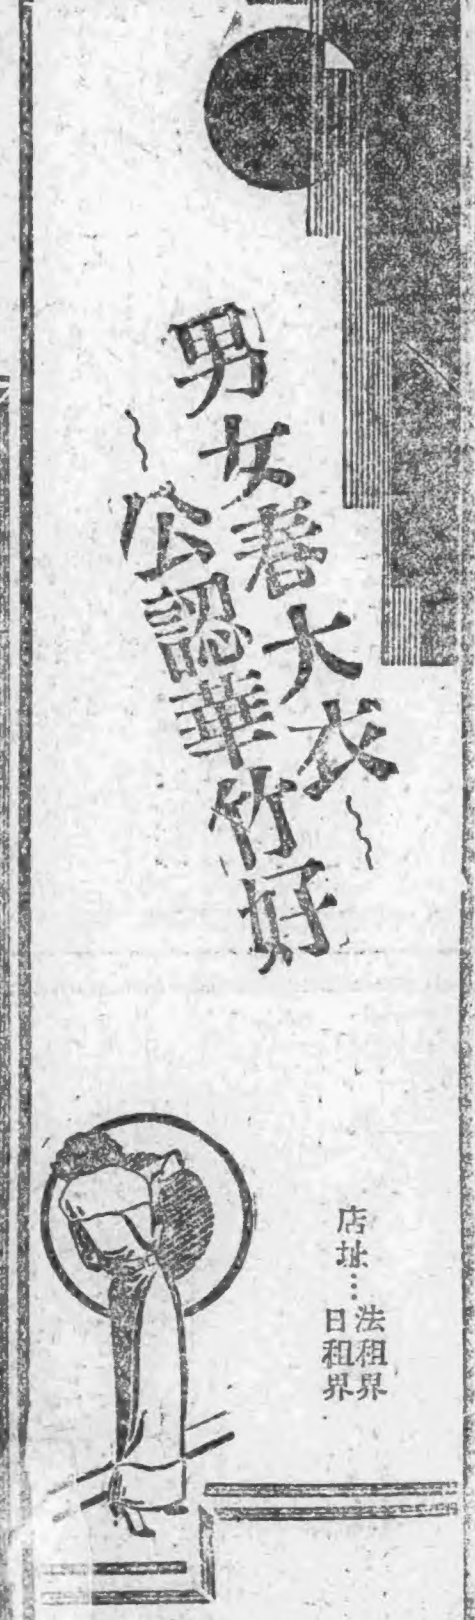 男女春大衣
公認華竹好
店址…法租界
日租界